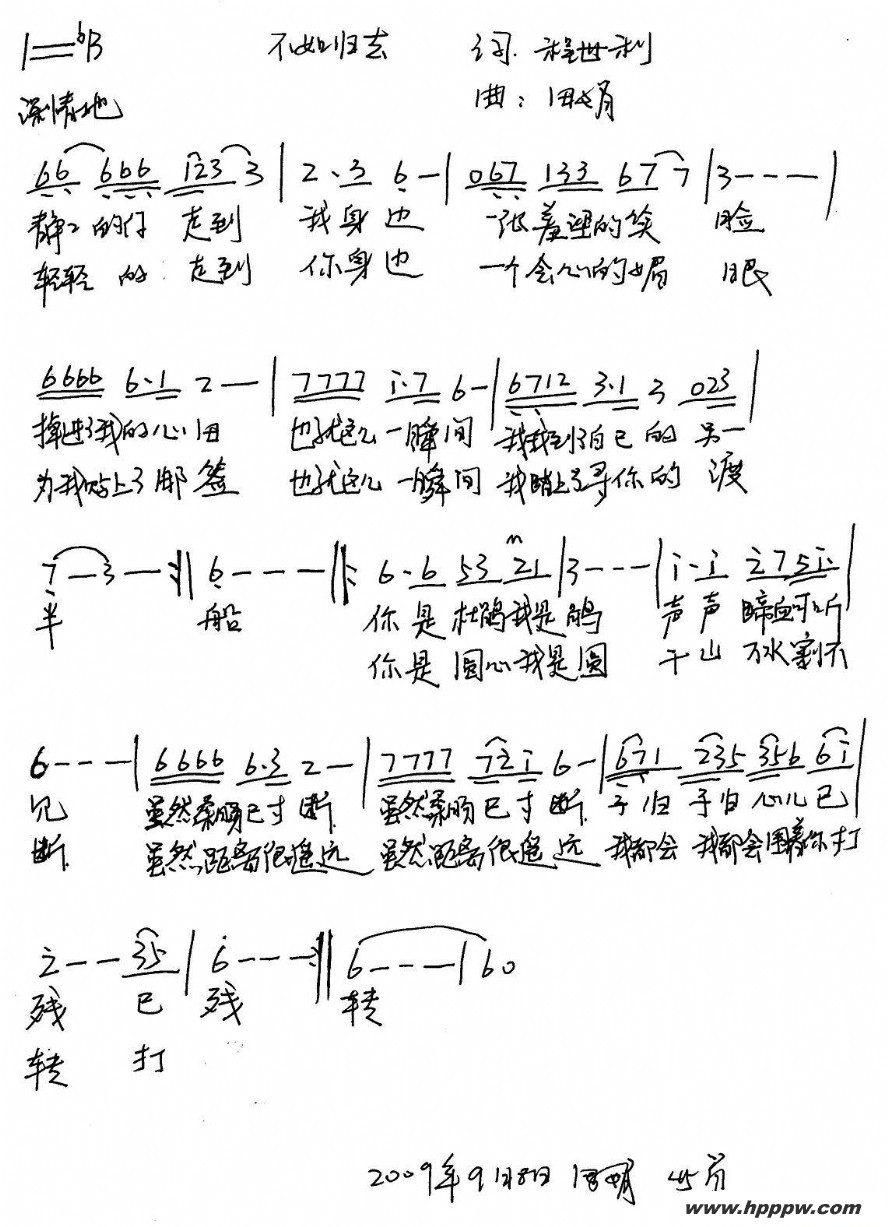 1=♭B 不如归去 词:程世利
深情地 曲:田娟
66 666 i23 3 | 2·3 6 - | 067 133 67 7 | 3 - - - |
静静的你 走到 我身边 一张羞涩的笑 脸
轻轻 的 走到 你身边 一个会心的媚 眼
6666 6·1 2 - | 7777 i·7 6 - | 6712 3·1 3 023 |
掉进了我的心田 也就这么一瞬间 我找到了自己的 另一
为我贴上了邮签 也就这么一瞬间 我踏上了寻你的 渡
7 - 3 - :|| 6 - - - ||: 6·6 53 21 | 3 - - - | i·i i75i· |
半 船 你是 杜鹃我是鹃 声声 啼血可听
你是 圆心我是圆 千山 万水割不
6 - - - | 6666 6·3 2 - | 7777 72i 6 - | 671 235 356 6i |
见 虽然柔肠已寸断 虽然柔肠已寸断 子归 子归 心儿已
断 虽然距离很遥远 虽然距离很遥远 我都会 我都会围着你打
2 - - 35 | 6 - - - :|| 6 - - - | 60
残 已 残 转
转 打
2009年9月8日 田娟
www.hpppw.com